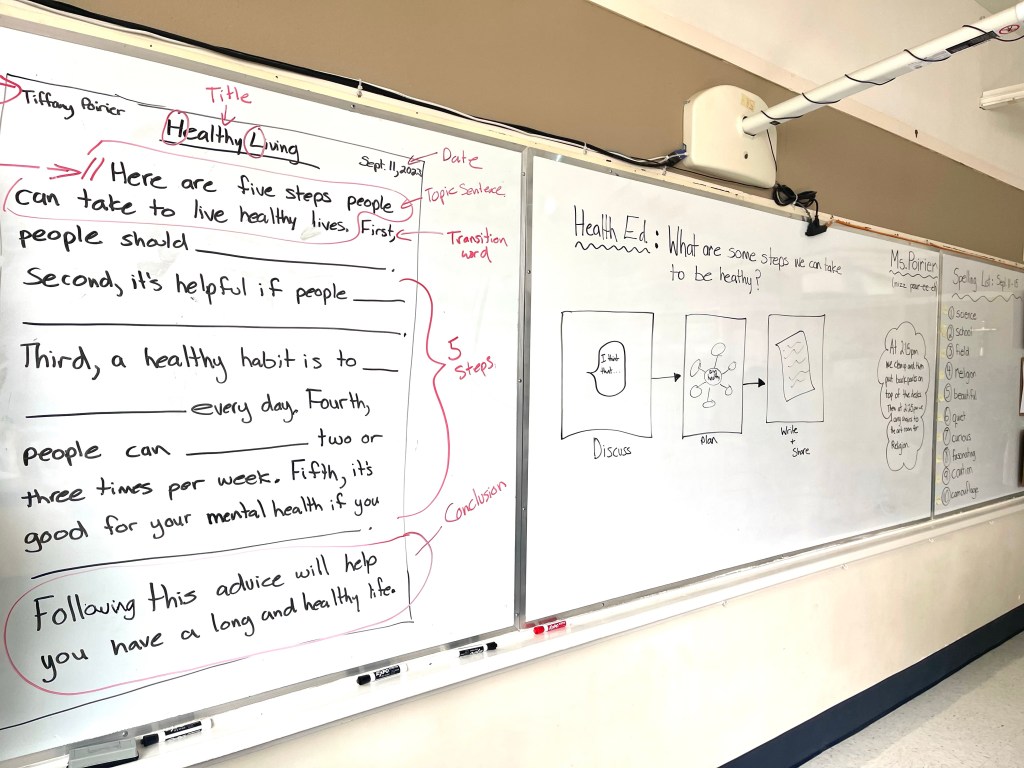 Tiffany Poirier
Title
Healthy Living
Sept. 11, 2023
Date
// Here are five steps people
can take to live healthy lives. First,
Topic Sentence
Transition
word
people should ____.
Second, it's helpful if people ____
____.
Third, a healthy habit is to ____
____ every day. Fourth,
people can ____ two or
three times per week. Fifth, it's
good for your mental health if you
____.
5
Steps
Conclusion
Following this advice will help
you have a long and healthy life.
Health Ed: What are some steps we can take
to be heathy?
I think
that...
Discuss
Plan
Write
+
Share
Ms. Poirier
At 2:15pm
we cleanup and then
put backpacks on
top of the desks.
Then at 2:25pm we
the art room for
Religion.
Spelling List: Sept 11-15
1 science
2 school
3 field
4 religion
5 beautiful
6 quiet
7 curious
8 fascinating
9 caution
10 camouflage
EXPO